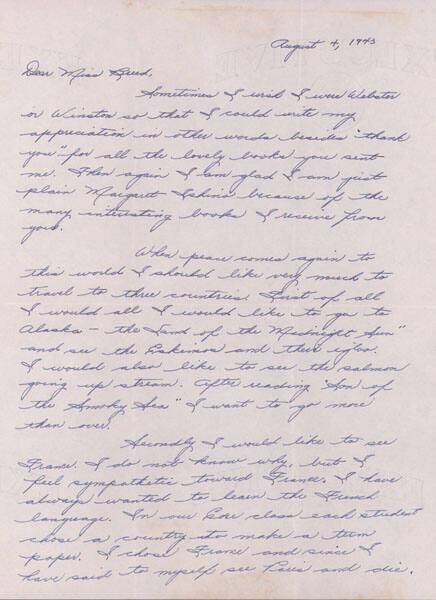 August 4, 1943
Dear Miss Breed,
Sometimes I wish I were Webster
or Winston so that I could write my
appreciation in other words besides "thank
you" for all the lovely books you sent
me. Then again I am glad I am just
plain Margaret Ishino because of the
many interesting books I receive from
you.
When peace comes again to
this world I should like very much to
travel to three countries. First of all
I would all I would like to go to
Alaska — the "Land of the Midnight Sun"
and see the Eskimos and their igloo.
I would also like to see the salmon
going up stream. After reading "Son of
the Smoky Sea" I want to go more
than ever.
Secondly I would like to see
France. I do not know why, but I
feel sympathetic toward France. I have
always wanted to learn the French
language. In our Core class each student
chose a country to make a term
paper. I chose France and since I
have said to myself see Paris and die.